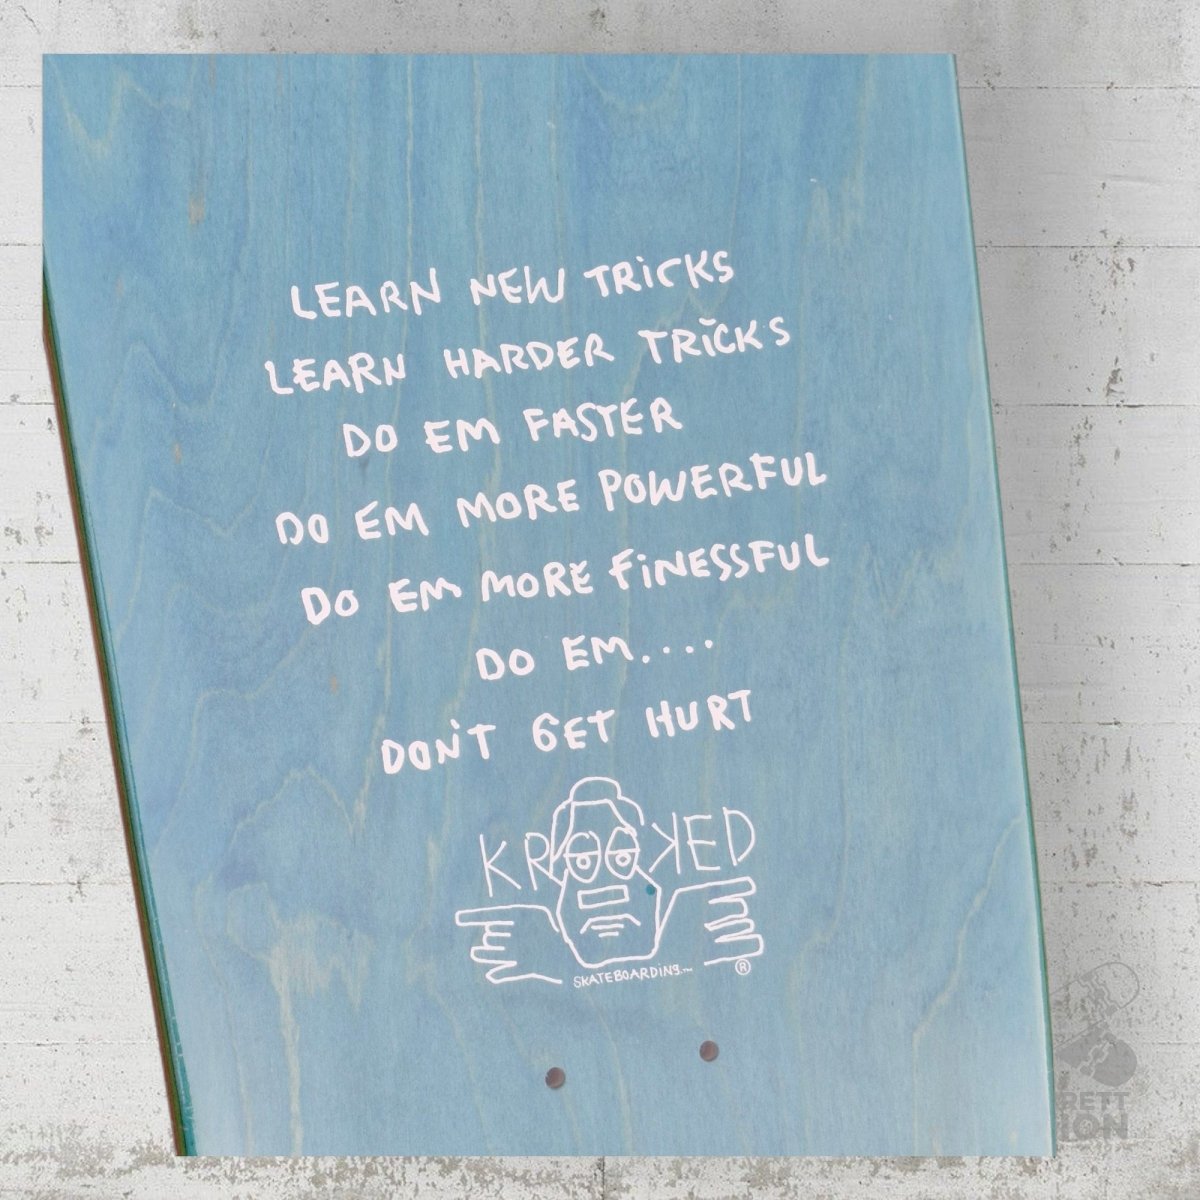 LEARN NEW TRICKS
LEARN HARDER TRICKS
DO EM FASTER
DO EM MORE POWERFUL
DO EM MORE FINESSFUL
DO EM....
DON'T GET HURT
KROOKED
SKATEBOARDING™
®
RETT
ION